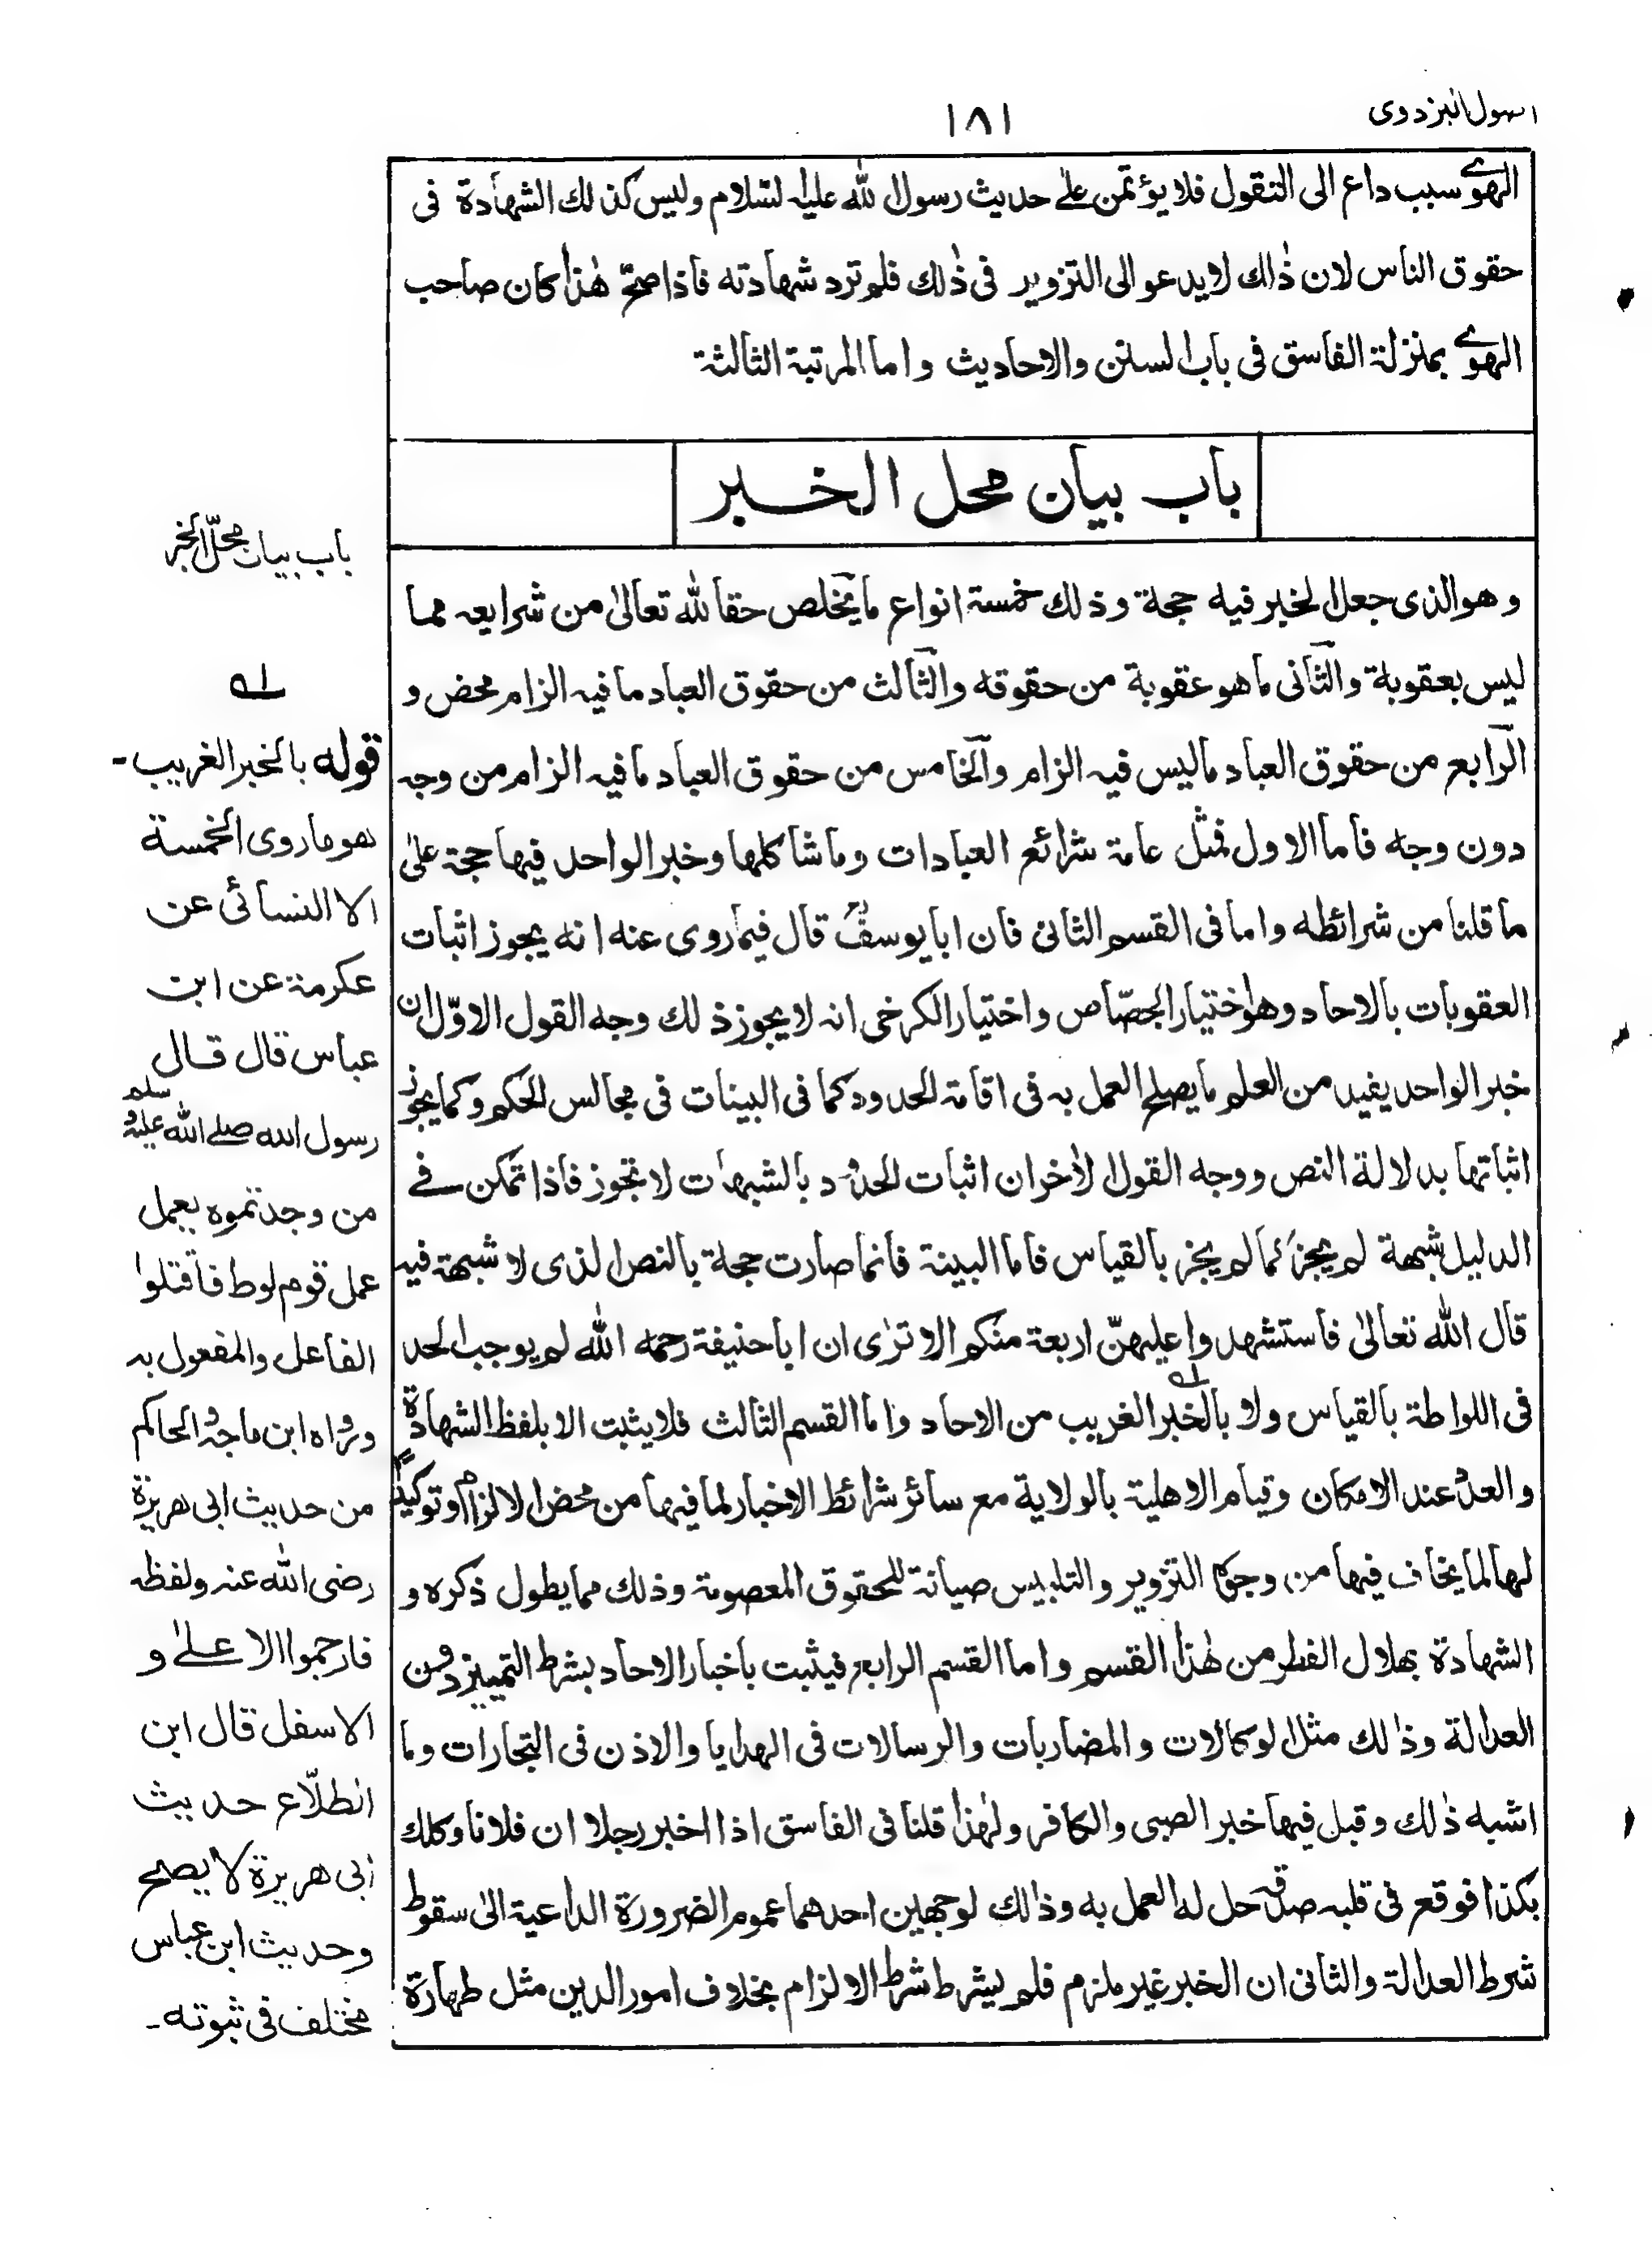 اصول البزدوی
١٨١
الهوے سبب داع الى التقول فلا يؤتمن على حديث رسول الله عليه السلام وليس كذلك الشهادة فى
حقوق الناس لان ذٰلك لا يدعو الى التزوير فى ذٰلك فلم ترد شهادته فاذا صحّ هٰذا كان صاحب
الهوے بمنزلة الفاسق فى باب السنن والاحاديث واما المرتبة الثالثة
باب بيان محل الخبر
وهو الذى جعل الخبر فيه حجة وذلك خمسة انواع ما يخلص حقا لله تعالىٰ من شرايعه مما
ليس بعقوبة والثانى ما هو عقوبة من حقوقه والثالث من حقوق العباد ما فيه الزام محض و
الرابع من حقوق العباد ما ليس فيه الزام والخامس من حقوق العباد ما فيه الزام من وجه
دون وجه فاما الاول فمثل عامة شرائع العبادات وما شاكلها وخبر الواحد فيها حجة علىٰ
ما قلنا من شرائطه واما فى القسم الثانى فان ابا يوسفؒ قال فيما روى عنه انه يجوز اثبات
العقوبات بالاحاد وهو اختيار الجصّاص واختيار الكرخى انه لا يجوز ذلك وجه القول الاوّل ان
خبر الواحد يفيد من العلم ما يصلح العمل به فى اقامة الحدود كما فى البينات فى مجالس الحكم وكما يجوز
اثباتها بدلالة النص ووجه القول الأخر ان اثبات الحدود بالشبهات لا تجوز فاذا تمكن فے
الدليل شبهة لم يجز كما لم يجز بالقياس فاما البينة فانما صارت حجة بالنص الذى لا شبهة فيه
قال الله تعالىٰ فاستشهدوا عليهنّ اربعة منكم الا ترٰى ان ابا حنيفة رحمه الله لم يوجب الحد
فى اللواطة بالقياس ولا بالخبر الغريب له من الاحاد واما القسم الثالث فلا يثبت الا بلفظ الشهادة
والعدد عند الامكان وقيام الاهلية بالولاية مع سائر شرائط الاخبار لما فيها من محض الالزام وتوكيدًا
لها لما يخاف فيها من وجوه التزوير والتلبيس صيانة للحقوق المعصومة وذلك مما يطول ذكره و
الشهادة بهلال الفطر من هٰذا القسم واما القسم الرابع فيثبت باخبار الاحاد بشرط التمييز دون
العدالة وذٰلك مثل الوكالات والمضاربات والرسالات فى الهدايا والاذن فى التجارات وما
اشبه ذٰلك وقبل فيها خبر الصبى والكافر ولهٰذا قلنا فى الفاسق اذا اخبر رجلا ان فلانا وكلك
بكذا فوقع فى قلبه صدقه حل له العمل به وذٰلك لوجهين احدهما عموم الضرورة الداعية الىٰ سقوط
شرط العدالة والثانى ان الخبر غير ملزم فلم يشرط شرط الالزام بخلاف امور الدين مثل طهارة
باب بيان محلّ الخبر
له
قوله بالخبر الغريب-
هو ما روى الخمسة
الا النسائى عن
عكرمة عن ابن
عباس قال قال
رسول الله صلے الله عليه وسلم
من وجدتموه يعمل
عمل قوم لوط فاقتلوا
الفاعل والمفعول به
ورواه ابن ماجه والحاكم
من حديث ابى هريرة
رضى الله عنه ولفظه
فارجموا الاعلىٰ و
الاسفل قال ابن
الطلّاع حديث
ابى هريرة لا يصح
وحديث ابن عباس
مختلف فى ثبوته-